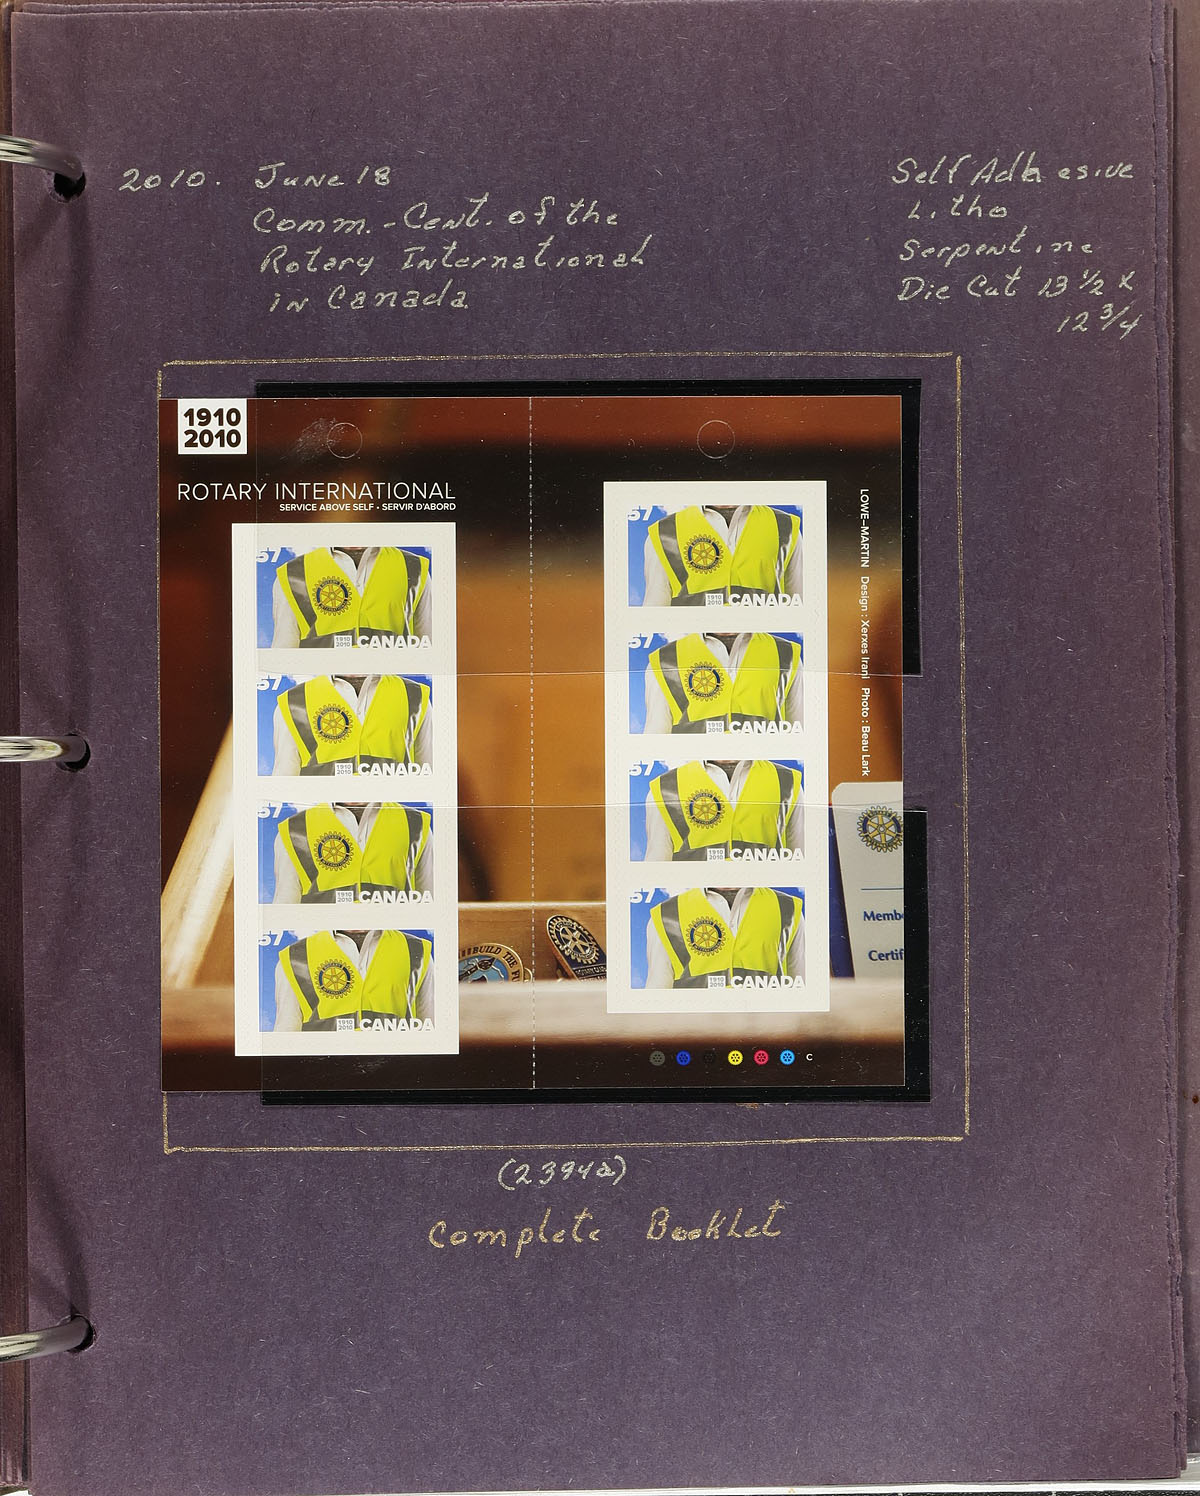 2010. June 18
Comm.-Cent. of the
Rotary International
in Canada
Self Adhesive
Litho
Serpentine
Die Cut 13 1/2 x
12 3/4
1910
2010
ROTARY INTERNATIONAL
SERVICE ABOVE SELF • SERVIR D'ABORD
57
1910
2010
CANADA
57
1910
2010
CANADA
57
1910
2010
CANADA
57
1910
2010
CANADA
57
1910
2010
CANADA
57
1910
2010
CANADA
57
1910
2010
CANADA
57
1910
2010
CANADA
LOWE–MARTIN Design : Xerxes Irani Photo : Beau Lark
BUILD THE
Memb
Certif
C
(2394a)
Complete Booklet